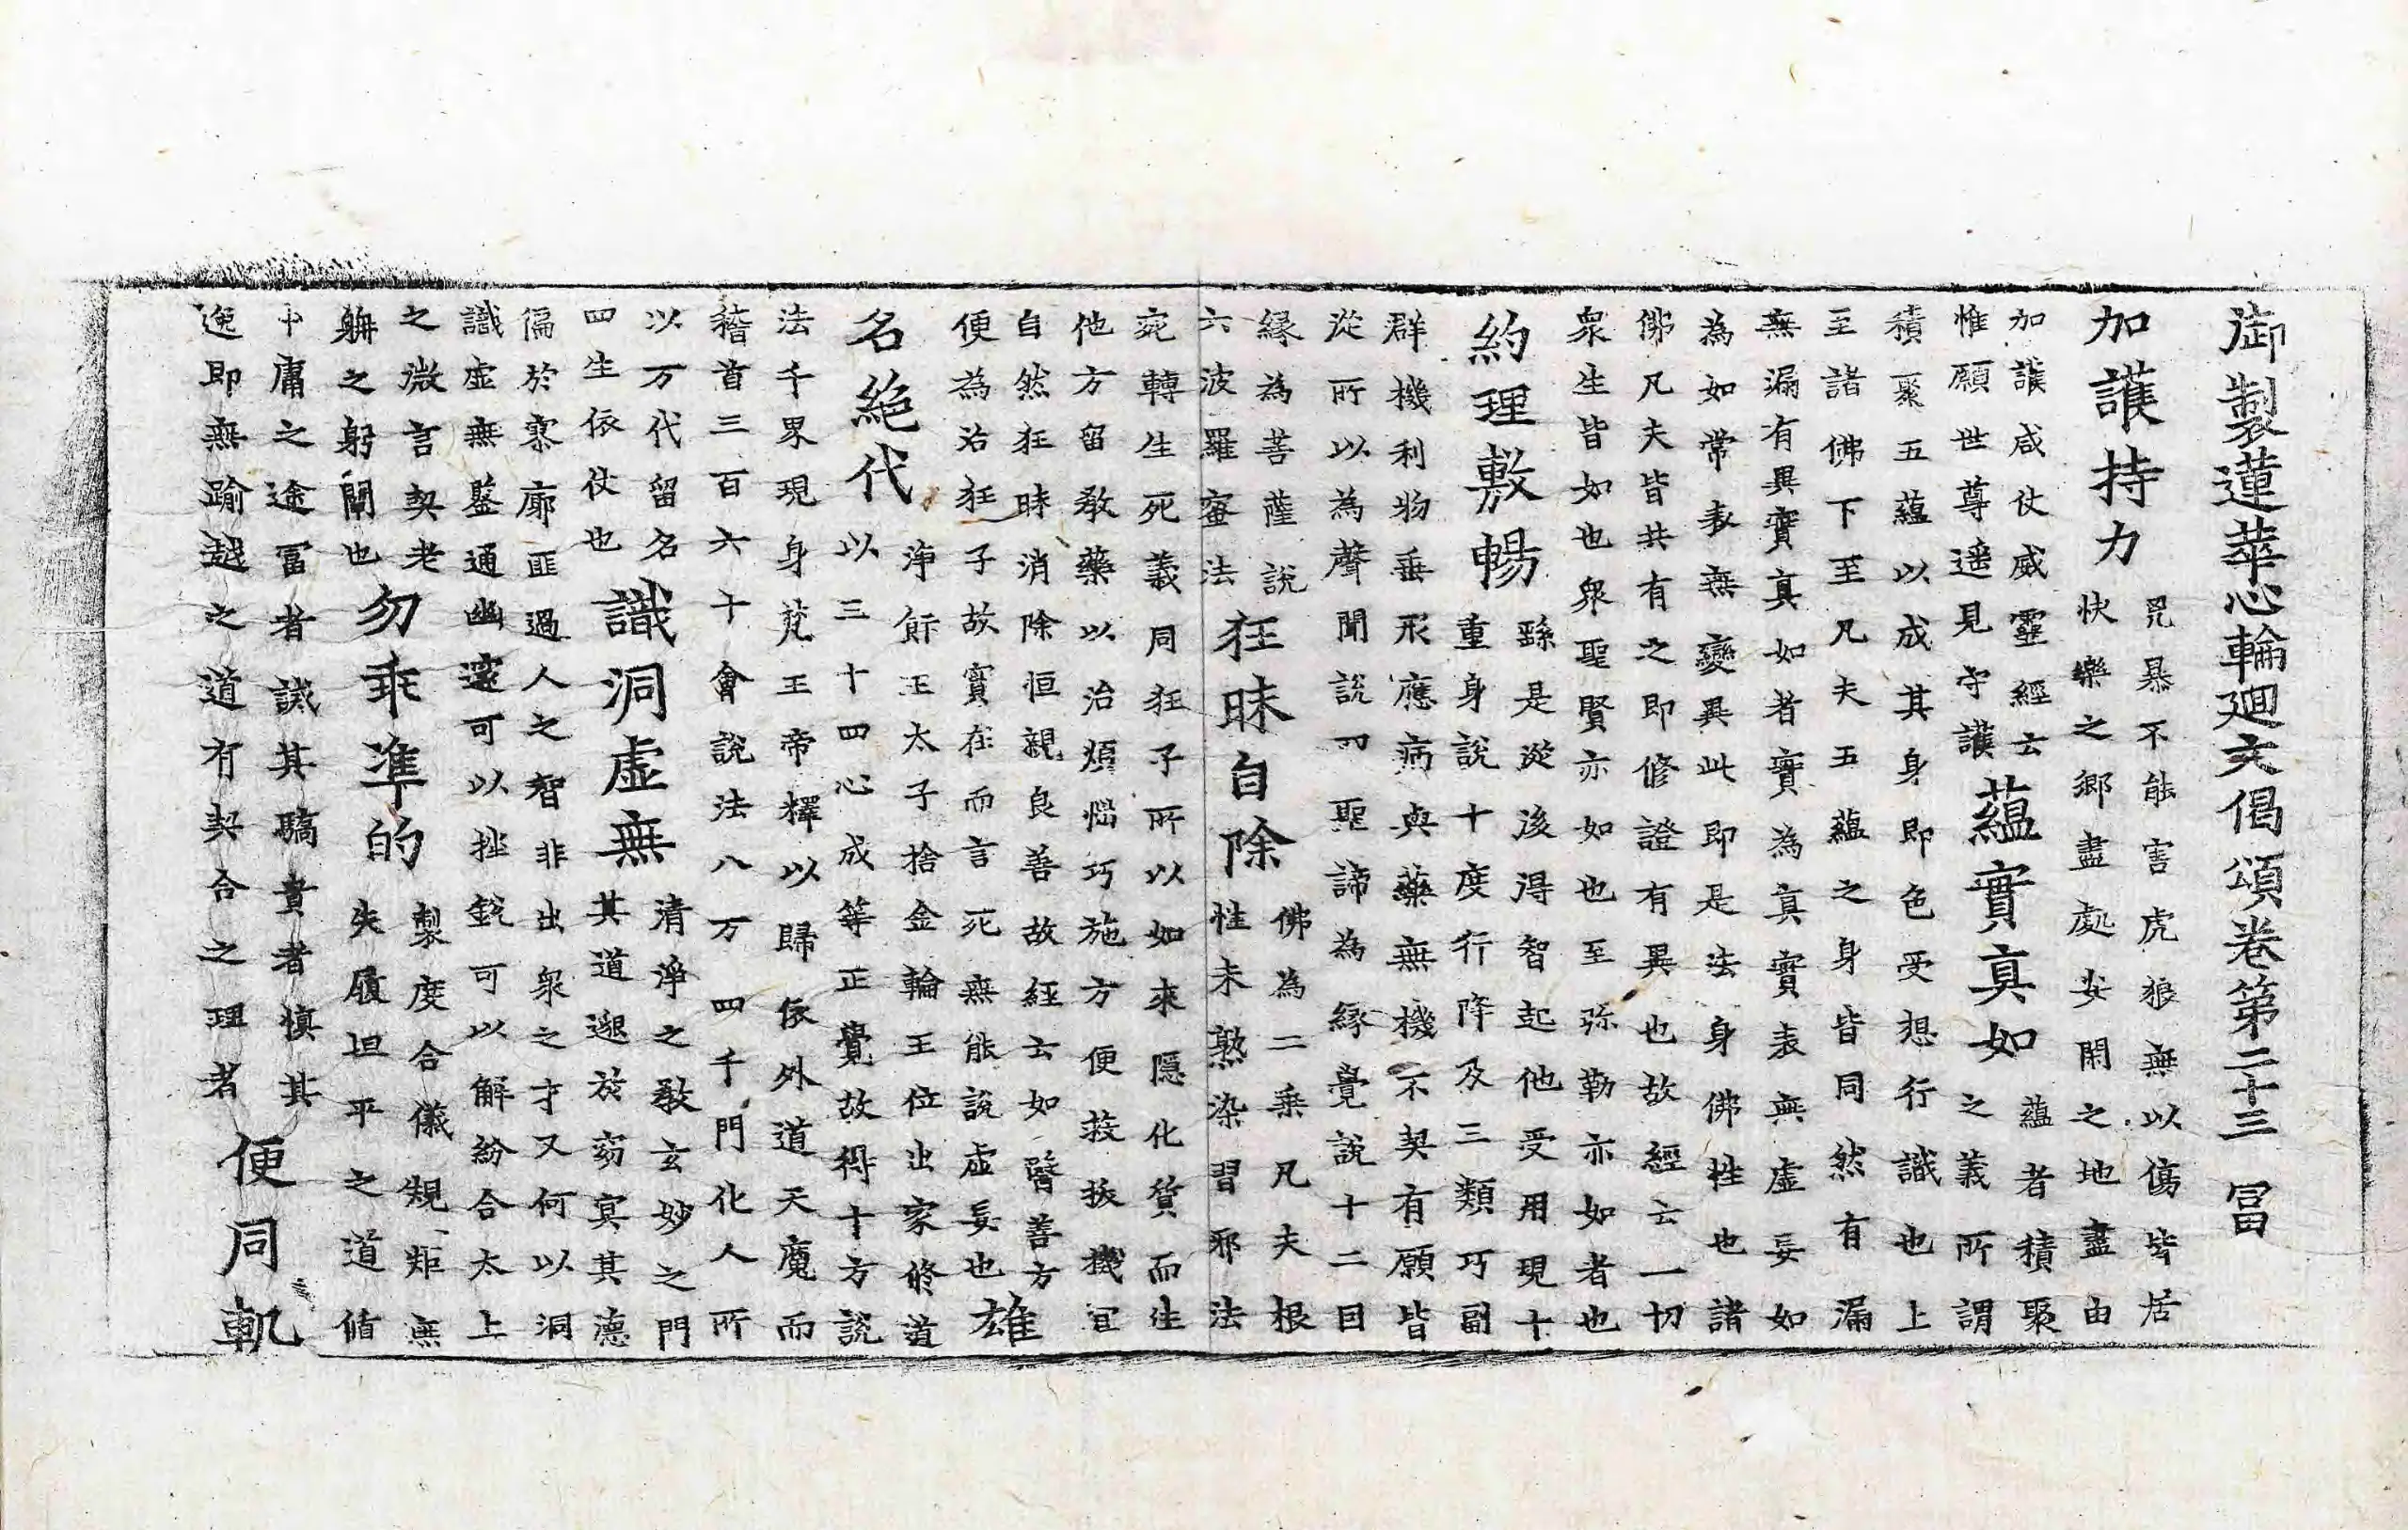 御製蓮華心輪廻文偈頌卷第二十三　冨
加護持力
兕暴不能害虎狼無以傷皆居
快樂之郷盡處安閑之地盡由
加護咸仗威靈經云
惟願世尊遥見守護
蘊實真如
蘊者積聚
之義所謂
積聚五蘊以成其身即色受想行識也上
至諸佛下至凡夫五蘊之身皆同然有漏
無漏有異實真如者實為真實表無虛妄如
為如常表無變異此即是法身佛性也諸
佛凡夫皆共有之即修證有異也故經云一切
衆生皆如也衆聖賢亦如也至弥勒亦如者也
約理敷暢
繇是從後得智起他受用現十
重身說十度行降及三類巧副
群機利物垂形應病與藥無機不契有願皆
從所以為聲聞說四聖諦為緣覺說十二因
緣為菩薩說
六波羅蜜法
狂昧自除
佛為二乘凡夫根
性未熟染習邪法
宛轉生死義同狂子所以如來隱化質而往
他方留教藥以治煩惱巧施方便拔機宜
自然狂昧消除恒親良善故經云如醫善方
便為治狂子故實在而言死無能說虛妄也
雄
名絶代
淨飯王太子捨金輪王位出家修道
以三十四心成等正覺故得十方說
法千界現身梵王帝釋以歸依外道天魔而
稽首三百六十會說法八万四千門化人所
以万代留名
四生依仗也
識洞虛無
清淨之教玄妙之門
其道遐於窈冥其德
偏於寥廓匪過人之智非出衆之才又何以洞
識虛無鑒通幽邃可以挫銳可以解紛合太上
之微言契老
躭之躬闡也
勿乖準的
製度合儀規矩無
失履坦平之道脩
中庸之途冨者誡其驕貴者慎其
逸即無踰越之道有契合之理者
便同軌